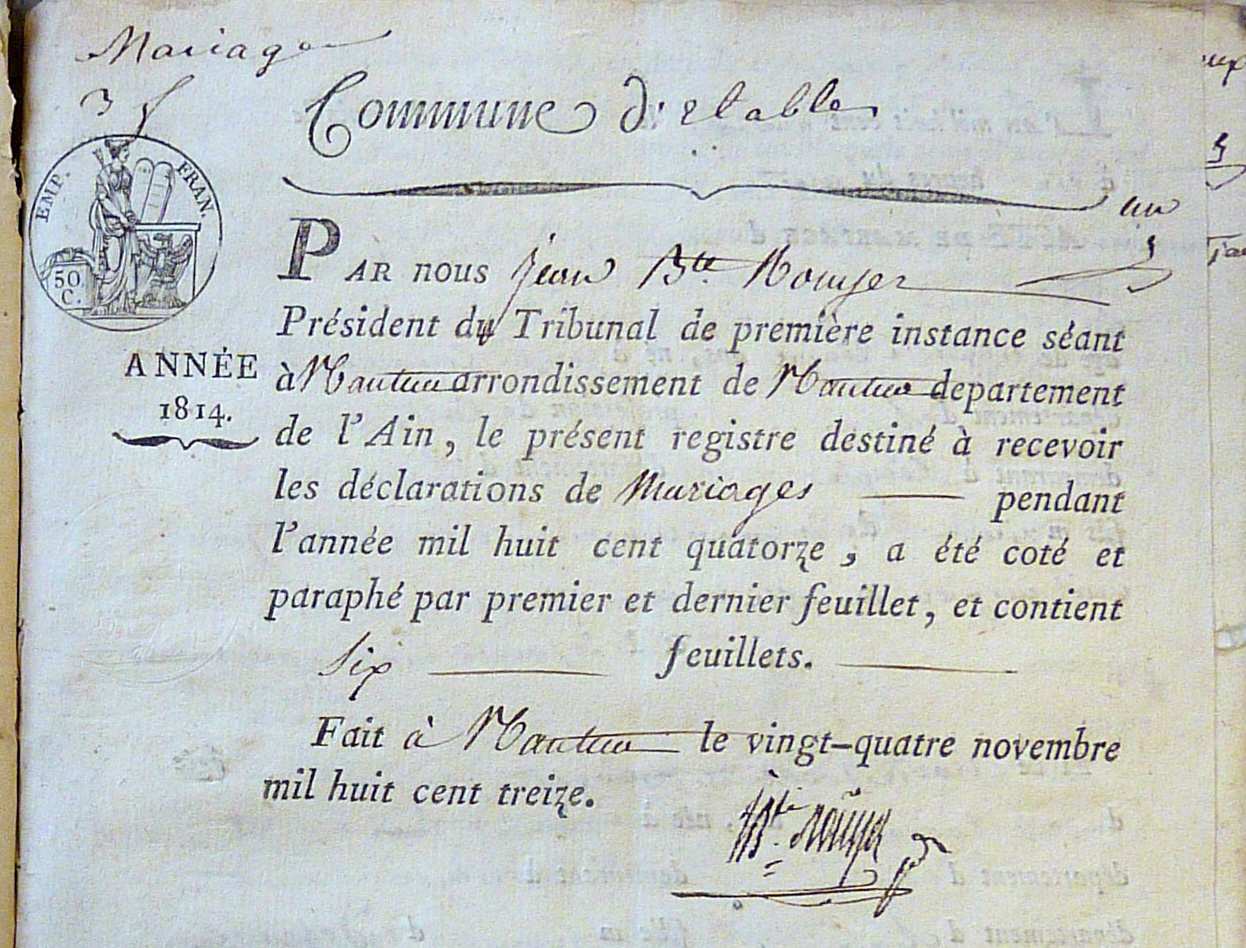 Mariage
3 f
Commune d'Etables
EMP. FRAN.
50 C.
un
PAR nous jean Bte. Rouyer
Président du Tribunal de première instance séant
à Nantua arrondissement de Nantua departement
ANNÉE
1814.
de l'Ain, le présent registre destiné à recevoir
les déclarations de Mariages pendant
l'année mil huit cent quatorze, a été coté et
paraphé par premier et dernier feuillet, et contient
six feuillets.
Fait à Nantua le vingt-quatre novembre
mil huit cent treize.